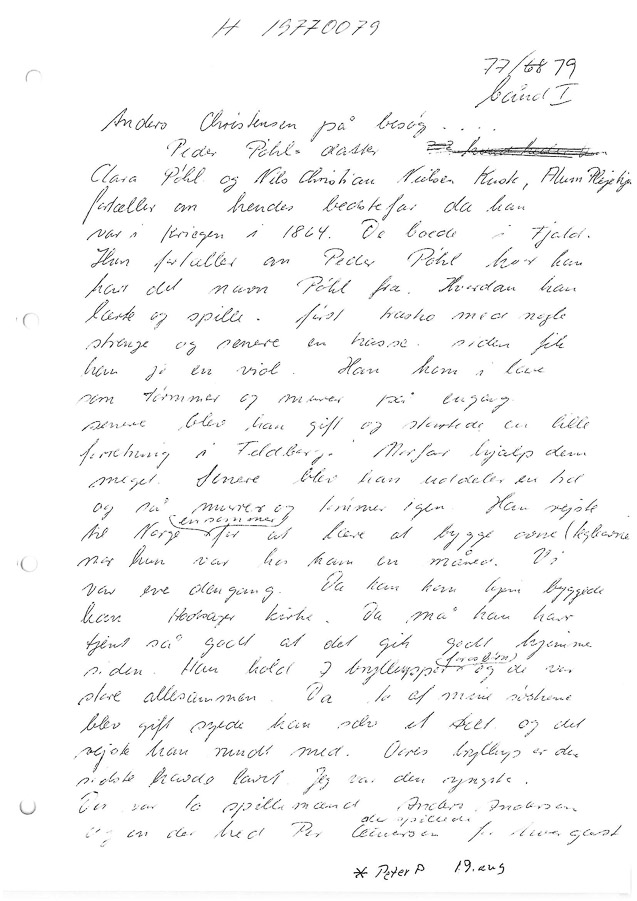 H 19770079
77/68 79
bånd I
Anders Christensen på besøg . . . .
Peder Pöhls datter
Clara Pöhl og Nils Christian Nielsen Kusk, Ålum
fortæller om hendes bedstefar da han
var i Krigen i 1864. De boede i Fjald.
Han fortæller om Peder Pöhl hvor han
har det navn Pöhl fra. Hvordan han
lærte og spille. først træsko med nogle
strenge og senere en kasse. siden fik
han jo en viol. Han kom i lære
som tømmer og murer på engang.
senere blev han gift og startede en lille
forretning i Feldberg. Morfar hjalp dem
meget. Senere blev han uddeler en hel
og så murer og tømmer igen. Han rejste
til Norge (en sommer) for at lære at bygge ovne (teglovne
mor hun var hos ham en måned. Vi
var eve dengang. Da han kom hjem byggede
han kirke. Da må han have
tjent så godt at det gik godt hjemme
siden. Han hold 7 brylluppper (for os børn) og de var
store allesammen. Da to af mine søskene
blev gift syede han selv et telt og det
rejste han rundt med. Deres bryllup er den
sidste havde lavet Jeg var den yngste.
Der var to spillemænd Anders Andersen
og en der hed Per der spillede for hver gæst
* Peter P 19. aug